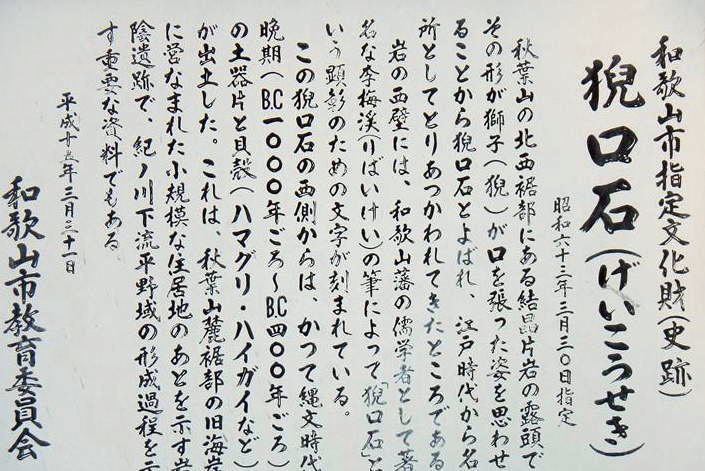 和歌山市指定文化財(史跡)
猊口石(げいこうせき)
昭和六十三年三月三〇日指定
秋葉山の北西裾部にある結晶片岩の露頭で
その形が獅子(猊)が口を張った姿を思わせ
ることから猊口石とよばれ、江戸時代から名
所としてとりあつかわれてきたところである
岩の西壁には、和歌山藩の儒学者として著
名な李梅渓(りばいけい)の筆によって「猊口石」と
いう顕彰のための文字が刻まれている。
この猊口石の西側からは、かつて縄文時代
晩期(B.C一〇〇〇年ごろ〜B.C四〇〇年ごろ)
の土器片と貝殻(ハマグリ・ハイガイなど)
が出土した。これは、秋葉山麓裾部の旧海岸
に営なまれた小規模な住居地のあとを示す岩
陰遺跡で、紀ノ川下流平野域の形成過程を示
す重要な資料でもある
平成廿五年三月三十一日
和歌山市教育委員会